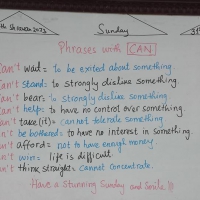 Sunday
Phrases with CAN
Can't wait= to be exited about something.
Can't stand: to strongly dislike something
Can't bear: to strongly dislike something
Can't help: to have no control over something.
Can't take(it)= cannot tolerate something.
n't be bothered: to have no interest in something.
n't afford= not to have enough money.
n't win= life is difficult.
n't think straight= cannot concentrate.
Have a stunning Sunday and Smile !!!